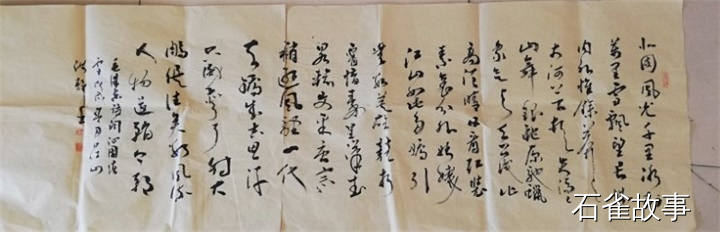 北国风光千里冰
万里雪飘望长城
内外惟余莽莽
大河上下顿失滔滔
山舞银蛇原驰蜡
象欲与天公试比
高须晴日看红装
素裹分外妖娆
江山如此多娇引
无数英雄竞折
腰惜秦皇汉武
略输文采唐宗
稍逊风骚一代
天骄成吉思汗
只识弯弓射大
雕俱往矣数风流
人物还看今朝
毛泽东词
石雀故事